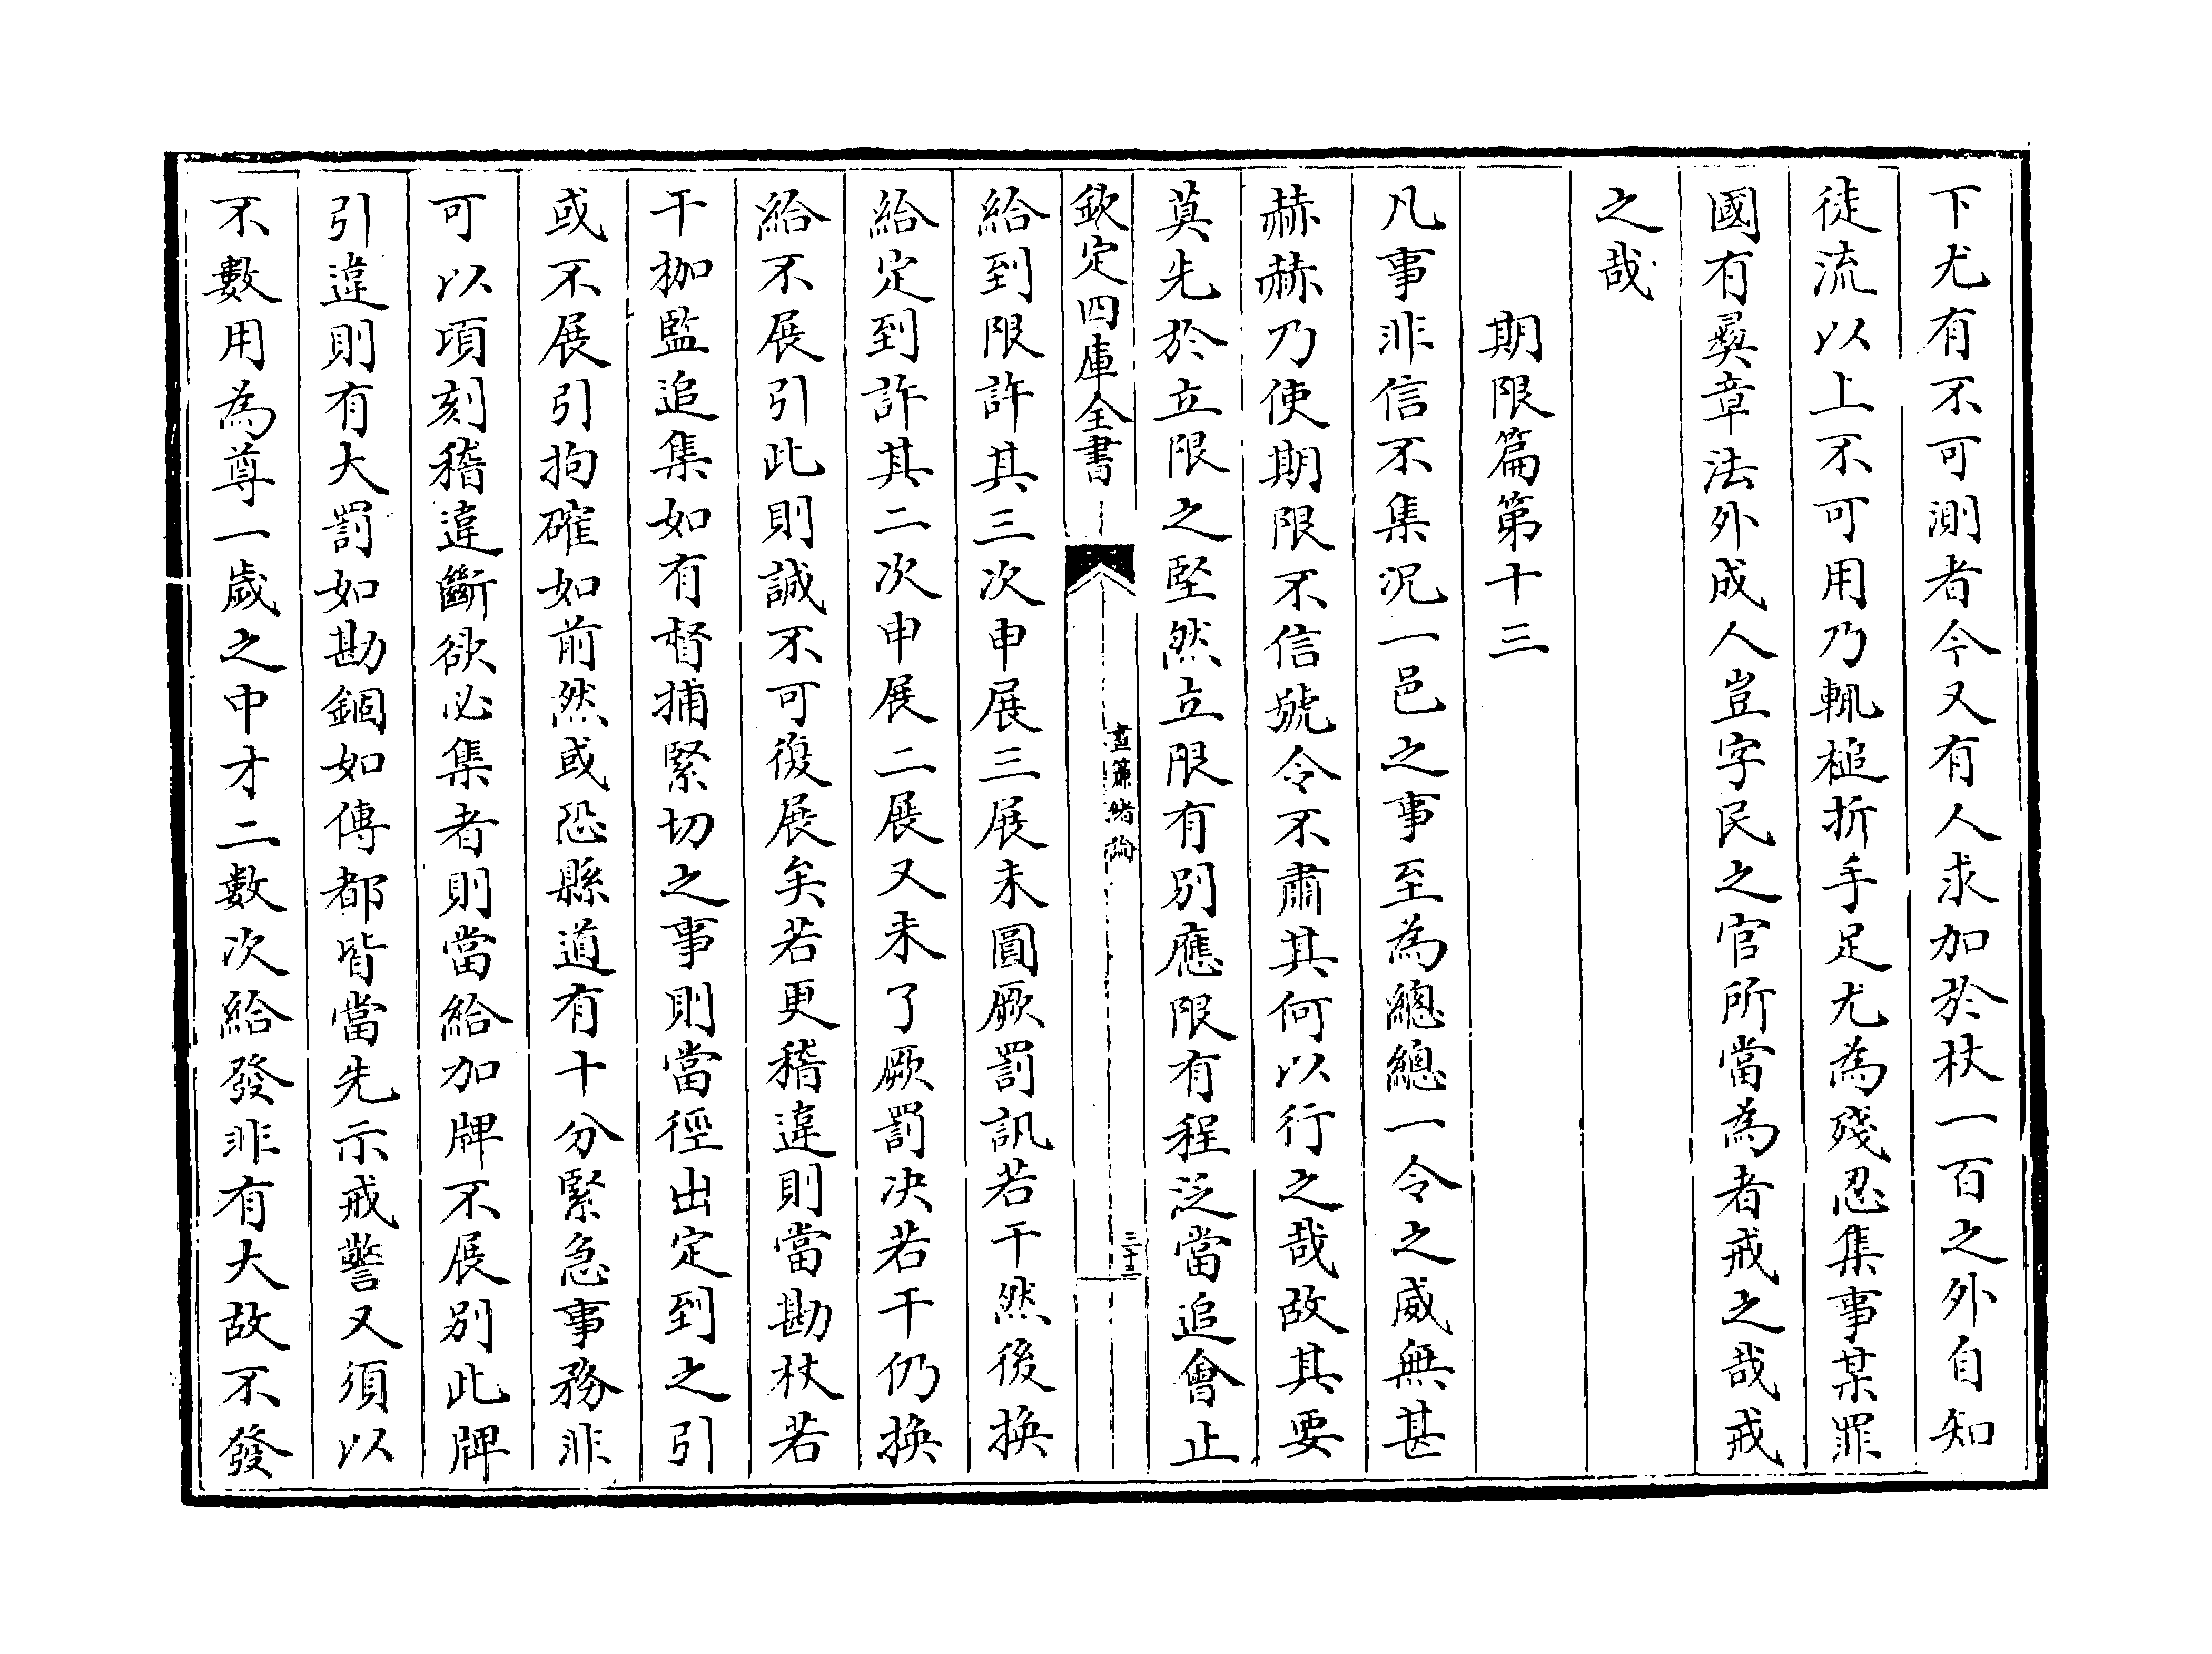 下尤有不可測者今又有人求加於杖一百之外自知
徒流以上不可用乃輒槌折手足尤為殘忍集事某罪
國有彛章法外成人豈字民之官所當為者戒之哉戒
之哉
期限篇第十三
凡事非信不集況一邑之事至為總總一令之威無甚
赫赫乃使期限不信號令不肅其何以行之哉故其要
莫先於立限之堅然立限有别應限有程泛當追㑹止
欽定四庫全書
晝簾緒論
三十三
給到限許其三次申展三展未圓厥罰訊若干然後換
給定到許其二次申展二展又未了厥罰决若干仍換
給不展引此則誠不可復展矣若更稽違則當勘杖若
干枷監追集如有督捕緊切之事則當徑出定到之引
或不展引拘確如前然或恐縣道有十分緊急事務非
可以頃刻稽違斷欲必集者則當給加牌不展别此牌
引違則有大罰如勘錮如傳都皆當先示戒警又須以
不數用為尊一歲之中才二數次給發非有大故不發